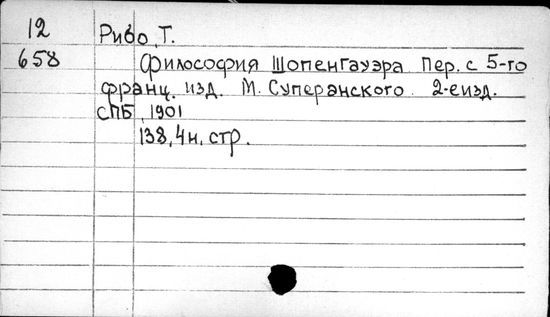 12 Рибо, Т.
658 Философия Шопенгауэра. Пер. с 5-го
франц. изд. М. Суперанского. 2-еизд.
СПБ, 1901
138, 4н. стр.